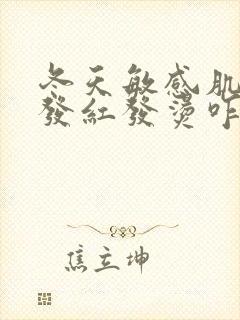 冬天敏感肌
發紅發燙咋
焦立坤